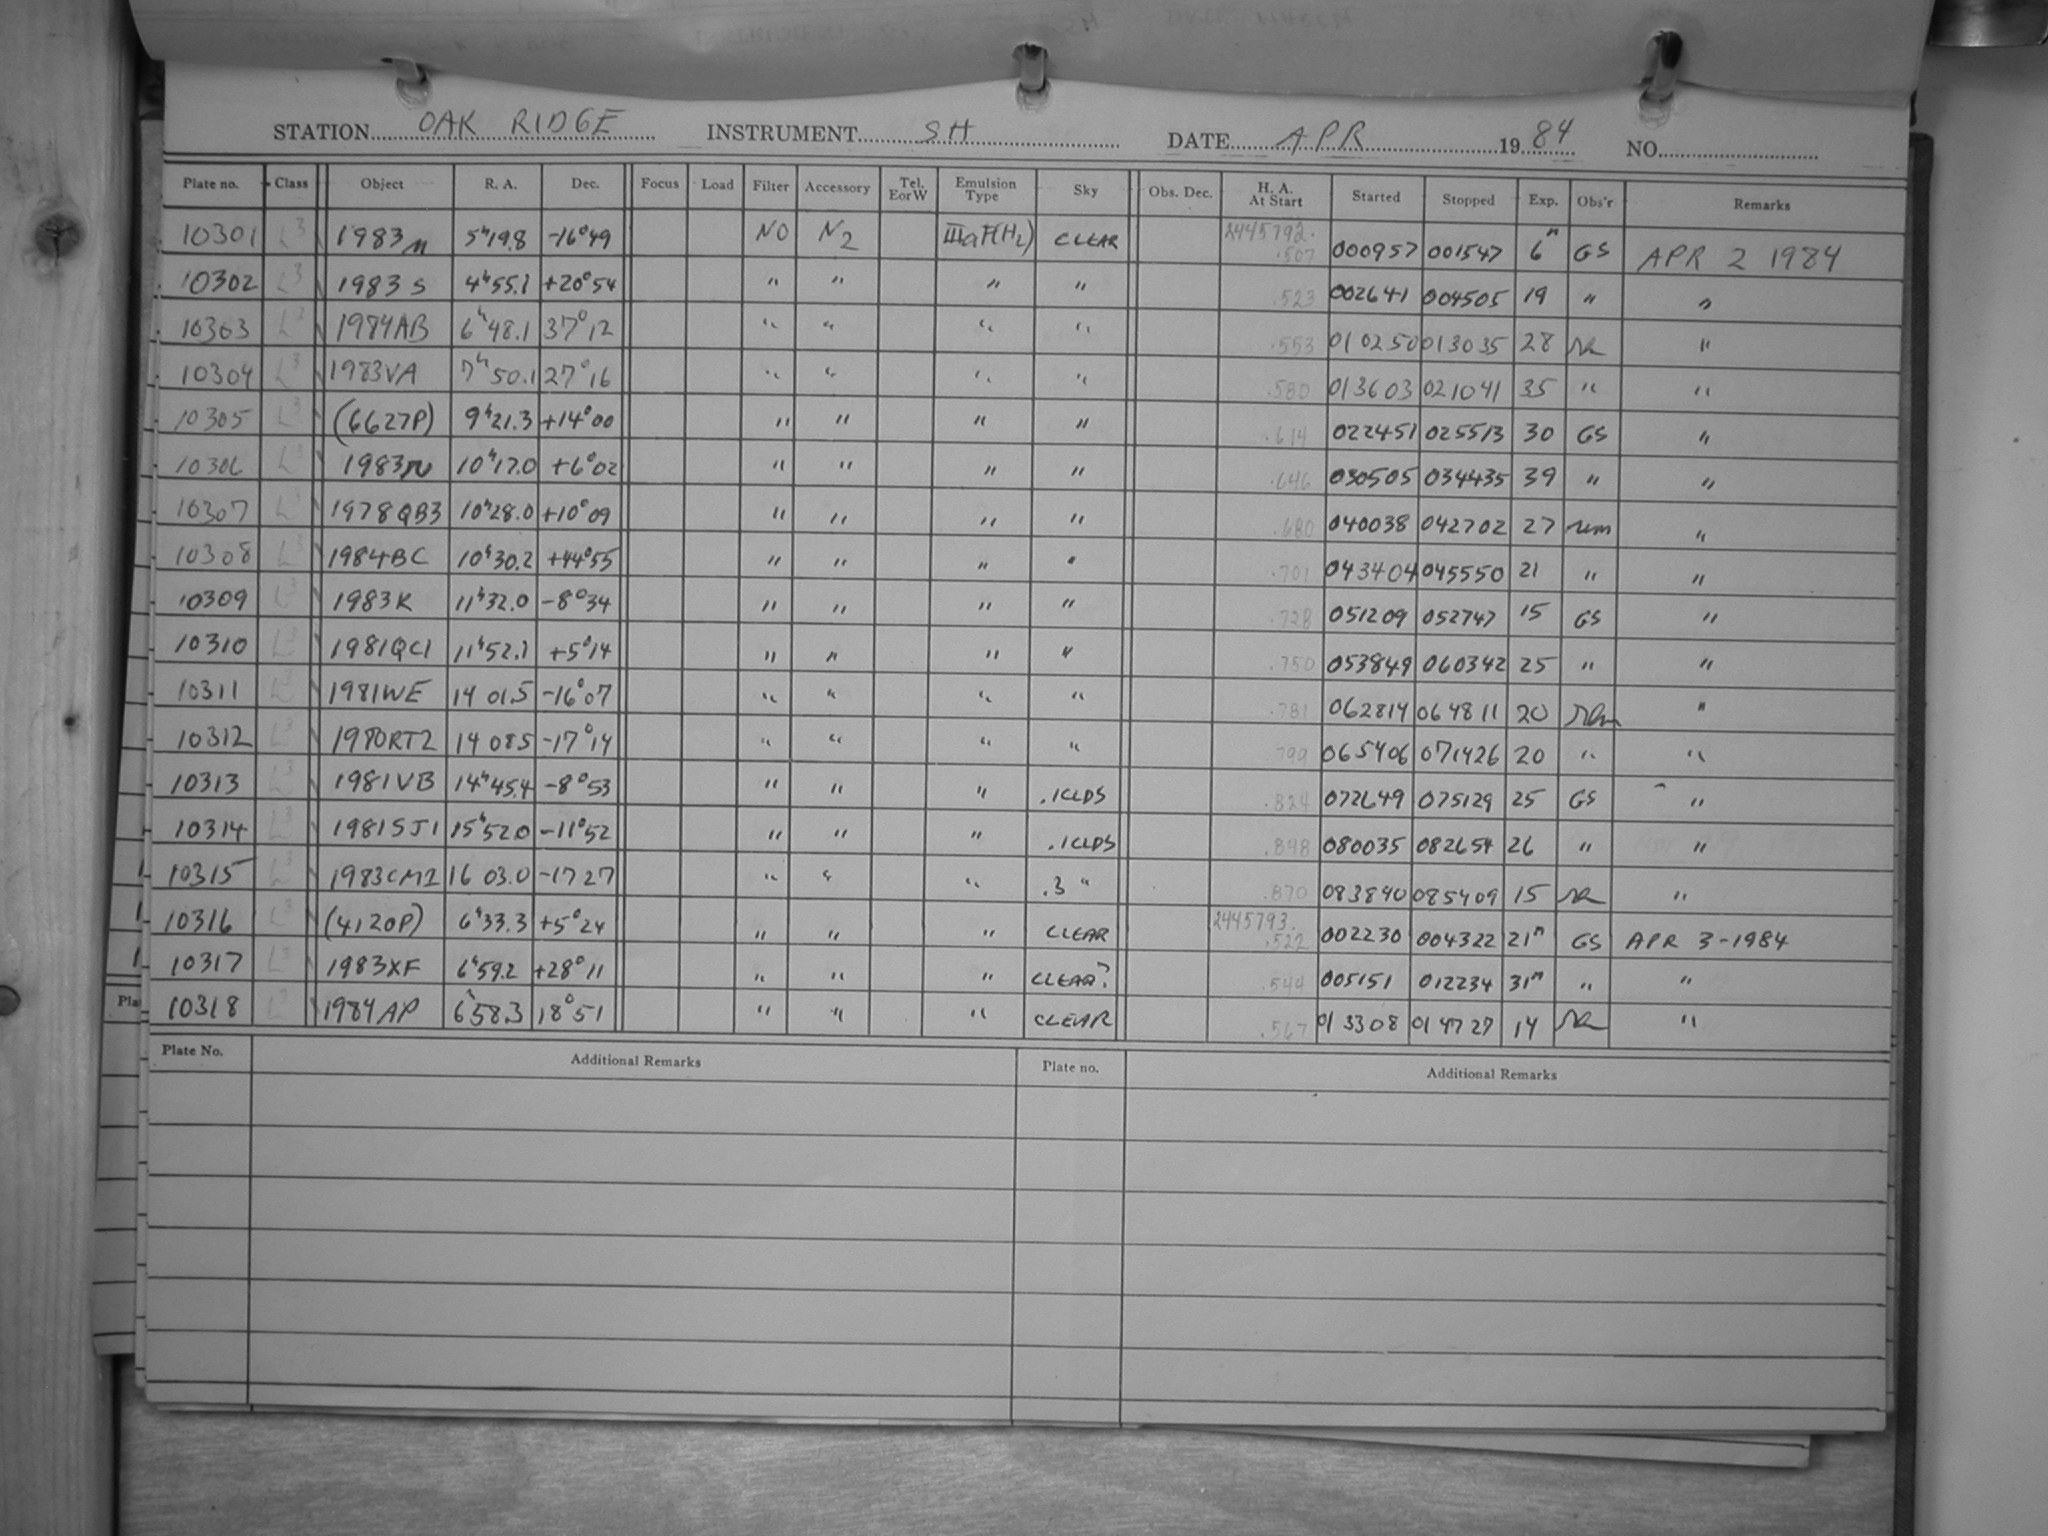 STATION OAK RIDGE INSTRUMENT SH DATE APR 1984 NO.
Plate no. Class Object R. A. Dec. Focus Load Filter Accessory Tel. EorW Emulsion Type Sky Obs. Dec. H. A. At Start Started Stopped Exp. Obs'r Remarks
10301 L3 1983n 5h19.8 -16°49 NO N2 IIIaF(H2) CLEAR 2445792. .507 000957 001547 6m GS APR 2 1984
10302 L3 1983 S 4h55.1 +20°54 " " " " .523 002641 004505 19 " "
10303 L3 1984AB 6h48.1 37°12 " " " " .553 010250 013035 28 "
10304 L3 1983VA 7h50.1 27°16 " " " " .580 013603 021041 35 " "
10305 L3 (6627P) 9h21.3 +14°00 " " " " .614 022451 025513 30 GS "
10306 L3 1983 10h17.0 +6°02 " " " " .646 030505 034435 39 " "
10307 L3 1978QB3 10h28.0 +10°09 " " " " .680 040038 042702 27 "
10308 L3 1984BC 10h30.2 +44°55 " " " " .701 043404 045550 21 " "
10309 L3 1983K 11h32.0 -8°34 " " " " .728 051209 052747 15 GS "
10310 L3 1981QC1 11h52.1 +5°14 " " " " .750 053849 060342 25 " "
10311 L3 1981WE 14 01.5 -16°07 " " " " .781 062814 064811 20 "
10312 L3 1980RT2 14 085 -17°14 " " " " .799 065406 071426 20 " "
10313 L3 1981VB 14h45.4 -8°53 " " " .1CLDS .824 072649 075129 25 GS "
10314 L3 1981SJ1 15h52.0 -11°52 " " " .1CLDS .898 080035 082654 26 " "
10315 L3 1983CM2 16 03.0 -17 27 " " " .3 " .870 083840 085409 15 "
10316 L3 (4120P) 6h33.3 +5°24 " " " CLEAR 2445793. .522 002230 004322 21m GS APR 3-1984
10317 L3 1983XF 6h59.2 +28°11 " " " CLEAR? .544 005151 012234 31m " "
10318 L3 1984AP 6h58.3 18°51 " " " CLEAR .567 013308 014727 14 "
Pla
Plate No. Additional Remarks Plate no. Additional Remarks